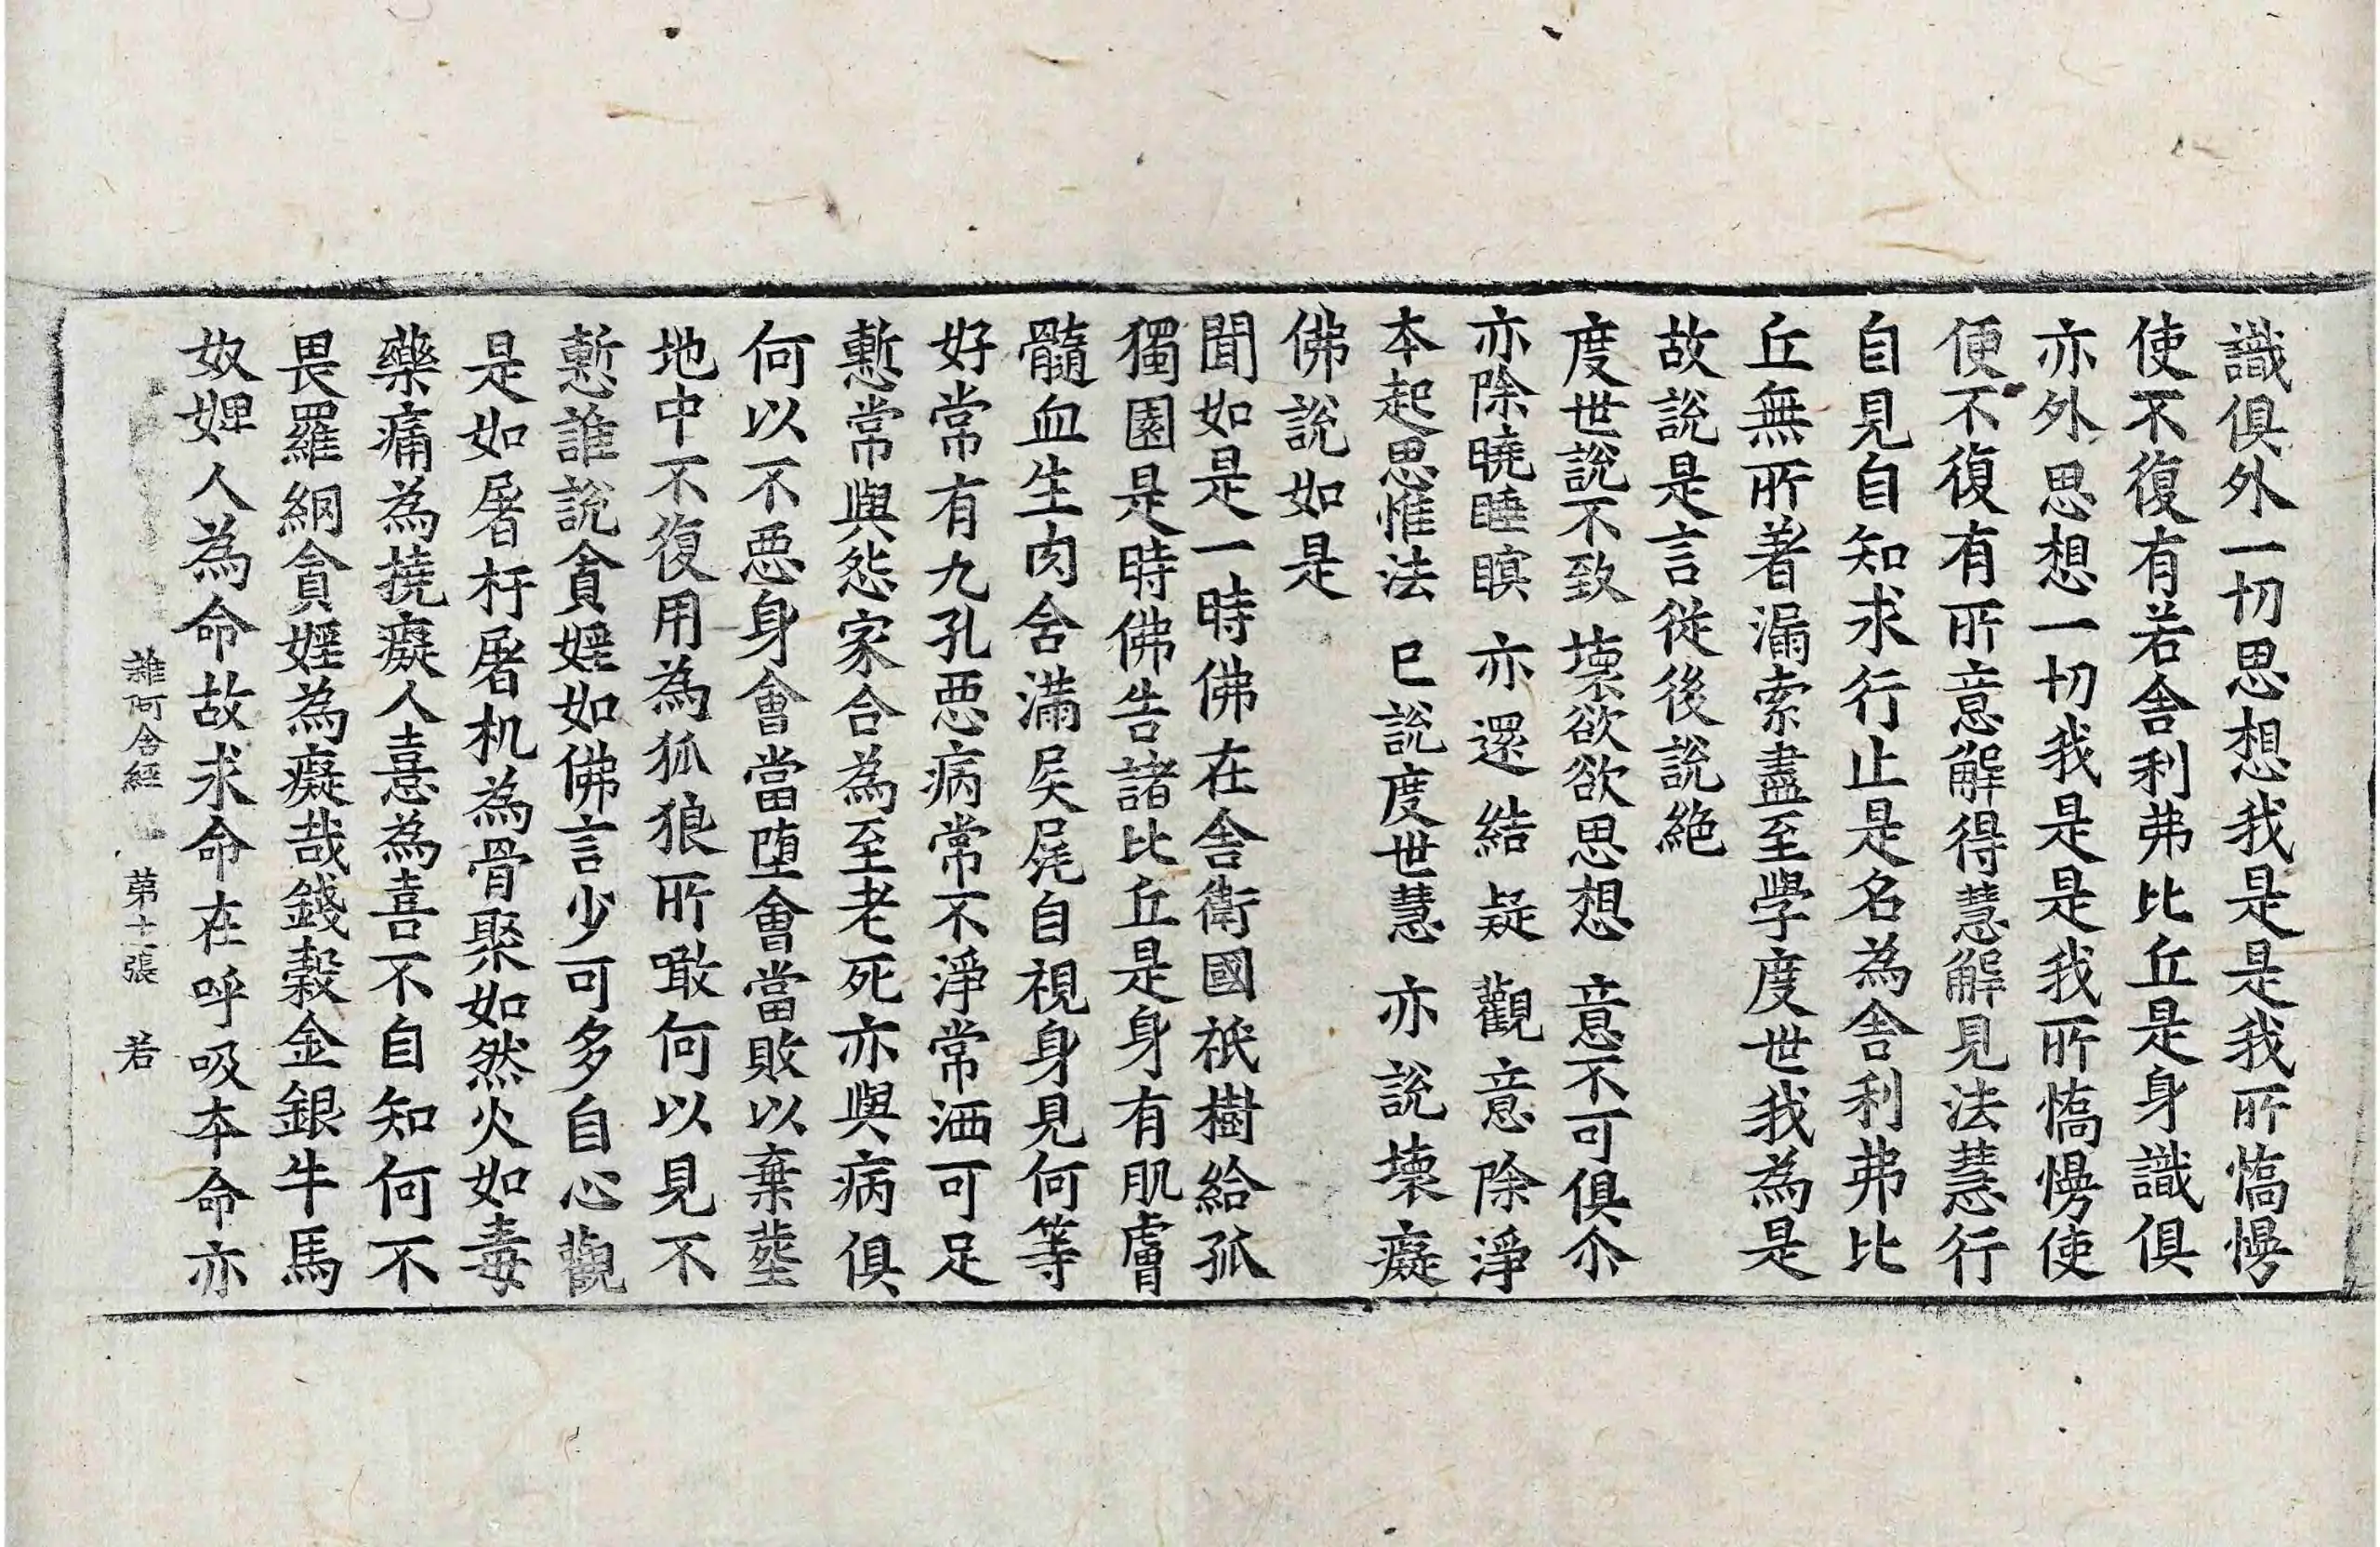 識俱外一切思想我是是我所憍慢
使不復有若舍利弗比丘是身識俱
亦外思想一切我是是我所憍慢使
便不復有所意解得慧解見法慧行
自見自知求行止是名為舍利弗比
丘無所著漏索盡至學度世我為是
故說是言從後說絶
度世說不致　壞欲欲思想　意不可俱尒
亦除曉睡瞑　亦還結疑　觀意除淨
本起思惟法　已說度世慧　亦說壞癡
佛說如是
聞如是一時佛在舍衛國祇樹給孤
獨園是時佛告諸比丘是身有肌膚
髓血生肉含滿屎尿自視身見何等
好常有九孔惡病常不淨常洒可足
慙常與怨家合為至老死亦與病俱
何以不惡身會當墮會當敗以棄葬
地中不復用為狐狼所噉何以見不
慙誰說貪婬如佛言少可多自心觀
是如屠杅屠机為骨聚如然火如毒
藥痛為撓癡人憙為喜不自知何不
畏羅網貪婬為癡哉錢穀金銀牛馬
奴婢人為命故求命在呼吸本命亦
雜阿含經　第十張　若